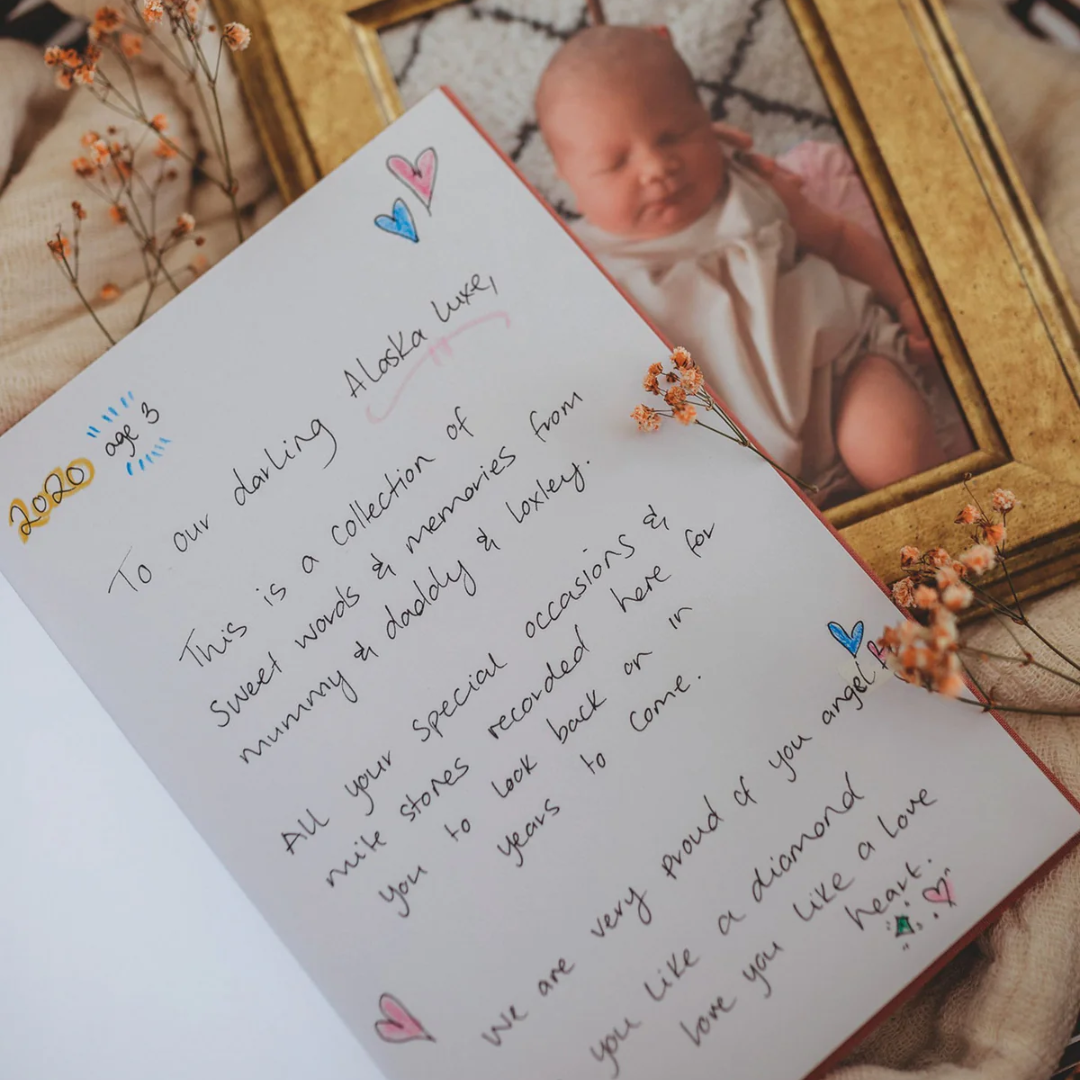 2020 age 3
To our darling Alaska Luxe,
This is a collection of
sweet words & memories from
mummy & daddy & loxley.
All your special occasions &
mile stones recorded here for
you to look back on in
years to come.
We are very proud of you angel
you like a diamond
love you like a love
heart.